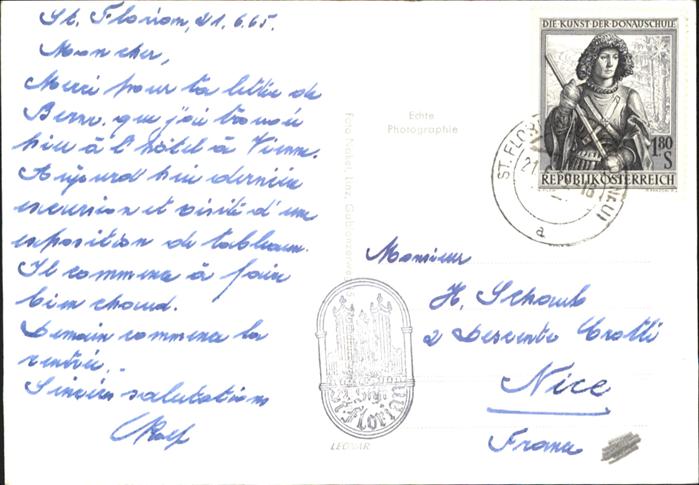 St. Florian, 21.6.65.
Mon cher,
Merci pour ta lettre de
Berne. que j'ai trouvée
hier à l'hôtel à Vienne.
Aujourd'hui dernière
excursion et visite d'une
exposition de tableaux.
Il commence à faire
bien chaud.
Demain commence la
rentrée.
Sincères salutations
Rolf
Echte
Photographie
DIE KUNST DER DONAUSCHULE
1.80
S
REPUBLIK ÖSTERREICH
ST. FLOR
21.
18
a
Monsieur
H. Schaub
2 Descente Crotti
Nice
France
St. Florian
LEONAR